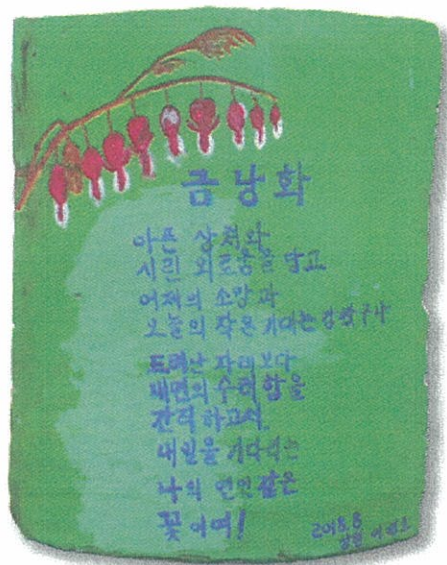 금낭화
아픈 상처와
시린 외로움을 담고
어제의 소망과
오늘의 작은 기대는 감췄구나
드러난 자리보다
내면의 수려함을
간직하고서
내일을 기다리는
나의 연인같은
꽃이여!
2018. 8